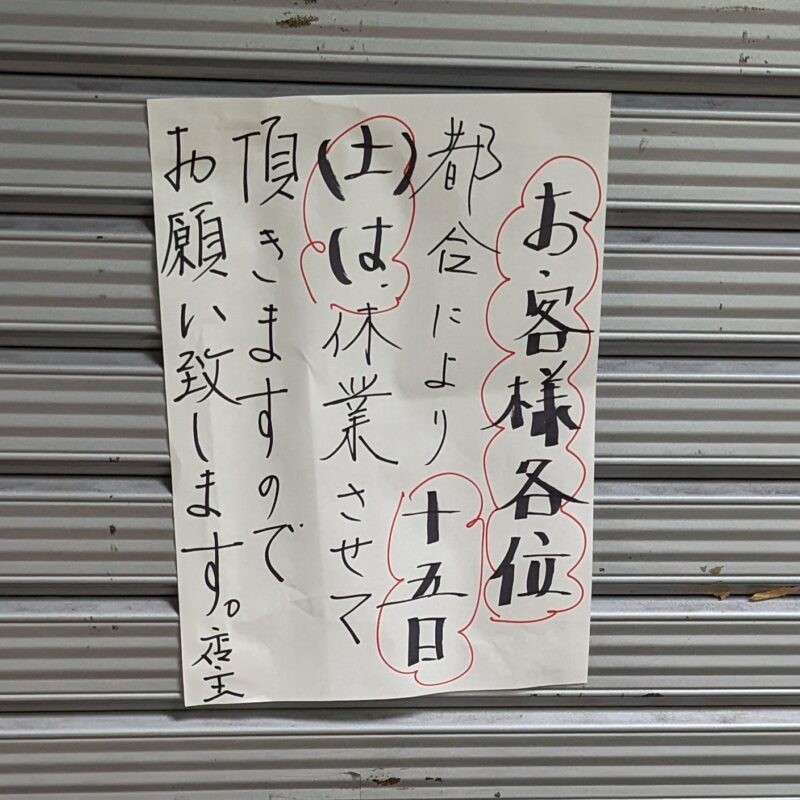 お客様各位
都合により十五日
(土)は休業させて
頂きますので
お願い致します。店主